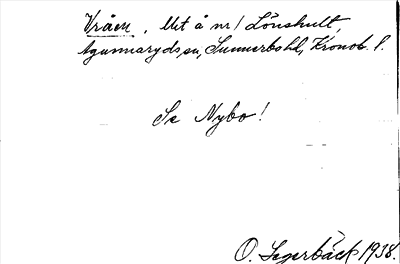 Vråen, Utst å nr 1 Lönshult,
Agunnaryds sn, Sunnerbo hd, Kronob. l.
Se Nybo!
O. Segerbäck 1938.